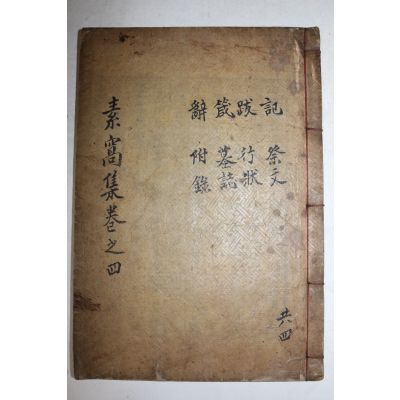 素窩集卷之四
記 祭文
跋 行狀
箴 墓誌
辭 附錄
共四